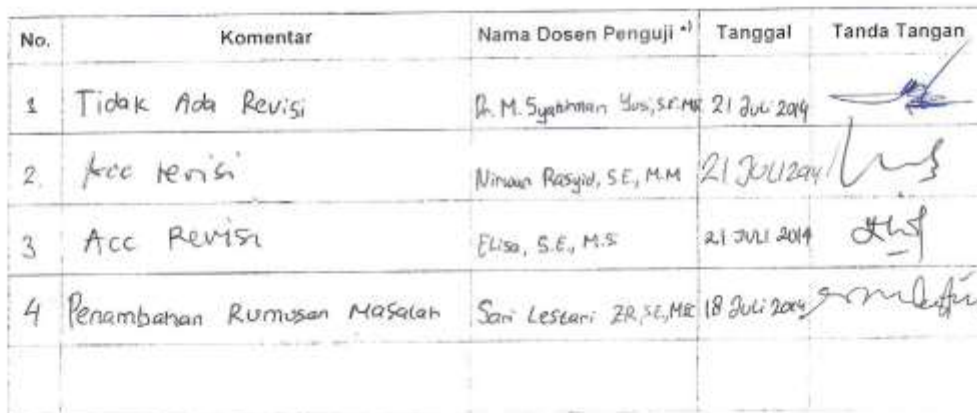 No. Komentar Nama Dosen Penguji *) Tanggal Tanda Tangan
1 Tidak Ada Revisi Dr. M. Syahirman Yusi, S.E, MS 21 Juli 2014
2. Acc revisi Rasyid, S.E, M.M 21 JULI 2014
3 Acc Revisi Elisa, S.E., M.S 21 JULI 2014
4 Penambahan Rumusan Masalah Sari Lestari ZR, SE, 18 Juli 2014